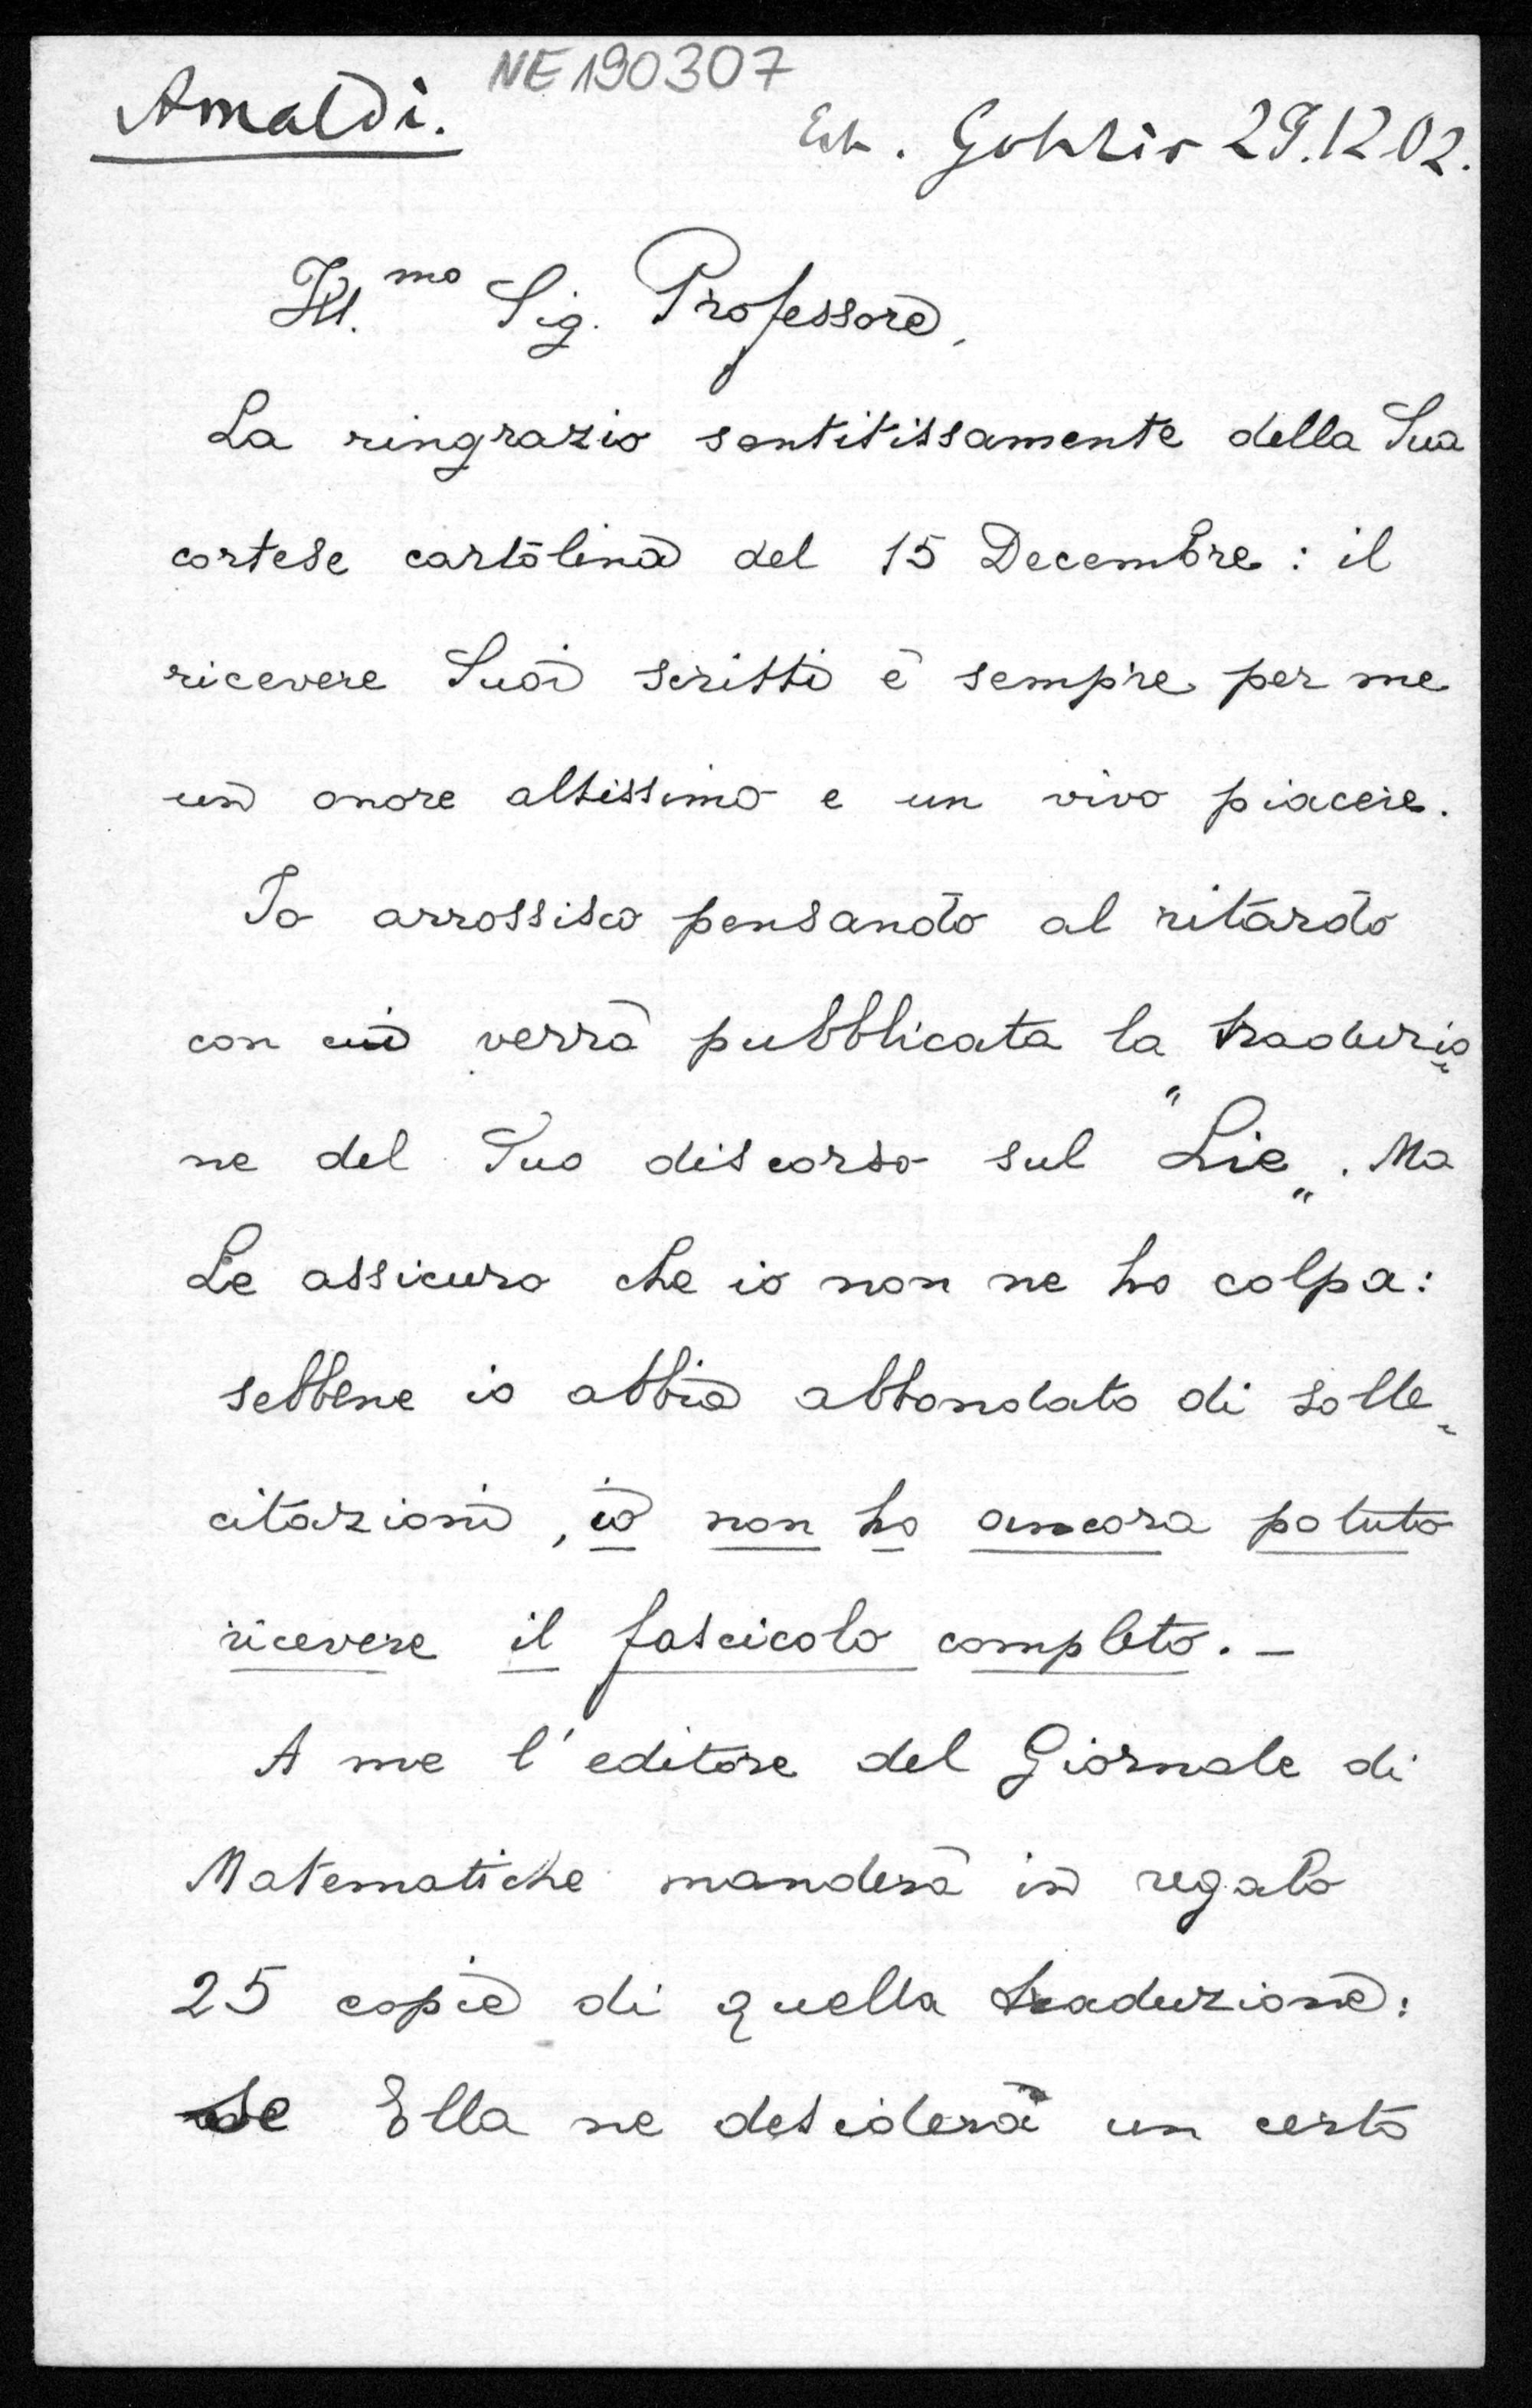 NE190307
Amaldi.
Erh. Gohlis 29.12.02.
Ill.mo Sig. Professore,
La ringrazio sentitissamente della Sua
cortese cartolina del 15 Decembre: il
ricevere Suoi scritti è sempre per me
un onore altissimo e un vivo piacere.
Io arrossisco pensando al ritardo
con cui verrà pubblicata la traduzio-
ne del Suo discorso sul "Lie„. Ma
Le assicuro che io non ne ho colpa:
sebbene io abbia abbondato di solle-
citazioni, io non ho ancora potuto
ricevere il fascicolo completo. -
A me l'editore del Giornale di
Matematiche manderà in regalo
25 copie di quella traduzione:
se Ella ne desidera un certo